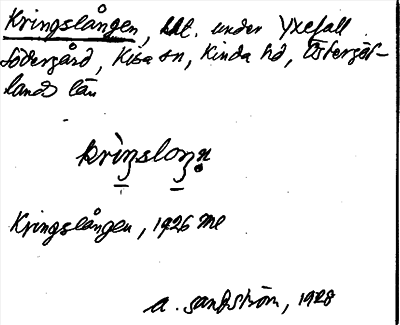 Kringslången, hlt. under Yxefall
Södergård, Kisa sn, Kinda hd, Östergöt-
lands län
krìŋsloŋn̥
Kringslången, 1926 Me
A. Sandström, 1928